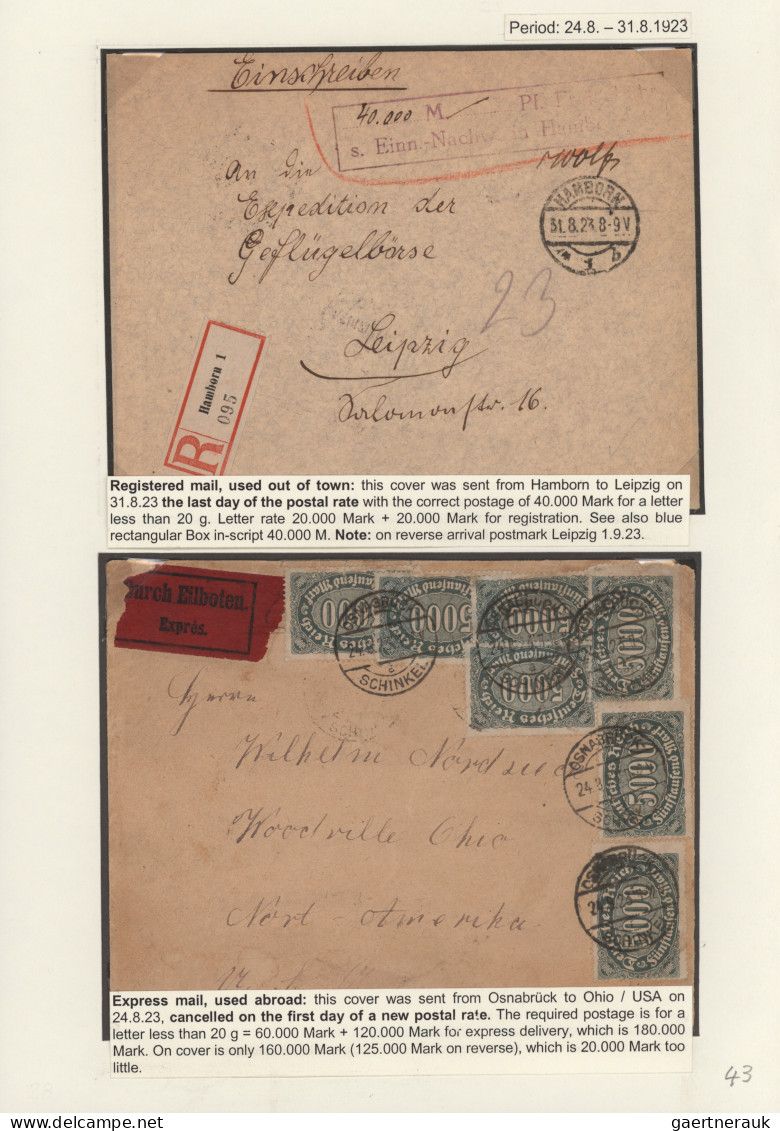 Period: 24.8. – 31.8.1923
Einschreiben
40.000 M. Pf.
s. Einn.-Nachw. in Hamb
An die
Expedition der
Geflügelbörse
HAMBORN
31.8.23.8-9V
* 1 b
23
Leipzig
Salomonstr. 16.
R
Hamborn 1
095
Registered mail, used out of town: this cover was sent from Hamborn to Leipzig on
31.8.23 the last day of the postal rate with the correct postage of 40.000 Mark for a letter
less than 20 g. Letter rate 20.000 Mark + 20.000 Mark for registration. See also blue
rectangular Box in-script 40.000 M. Note: on reverse arrival postmark Leipzig 1.9.23.
Durch Eilboten.
Exprés.
5000
Deutsches Reich
Fünftausend Mark
SCHINKEL
OSNABRÜCK
24.8
Herrn
Wilhelm
Woodville Ohio
Nort Amerika
Express mail, used abroad: this cover was sent from Osnabrück to Ohio / USA on
24.8.23, cancelled on the first day of a new postal rate. The required postage is for a
letter less than 20 g = 60.000 Mark + 120.000 Mark for express delivery, which is 180.000
Mark. On cover is only 160.000 Mark (125.000 Mark on reverse), which is 20.000 Mark too
little.
43
www.delcampe.net
gaertnerauk